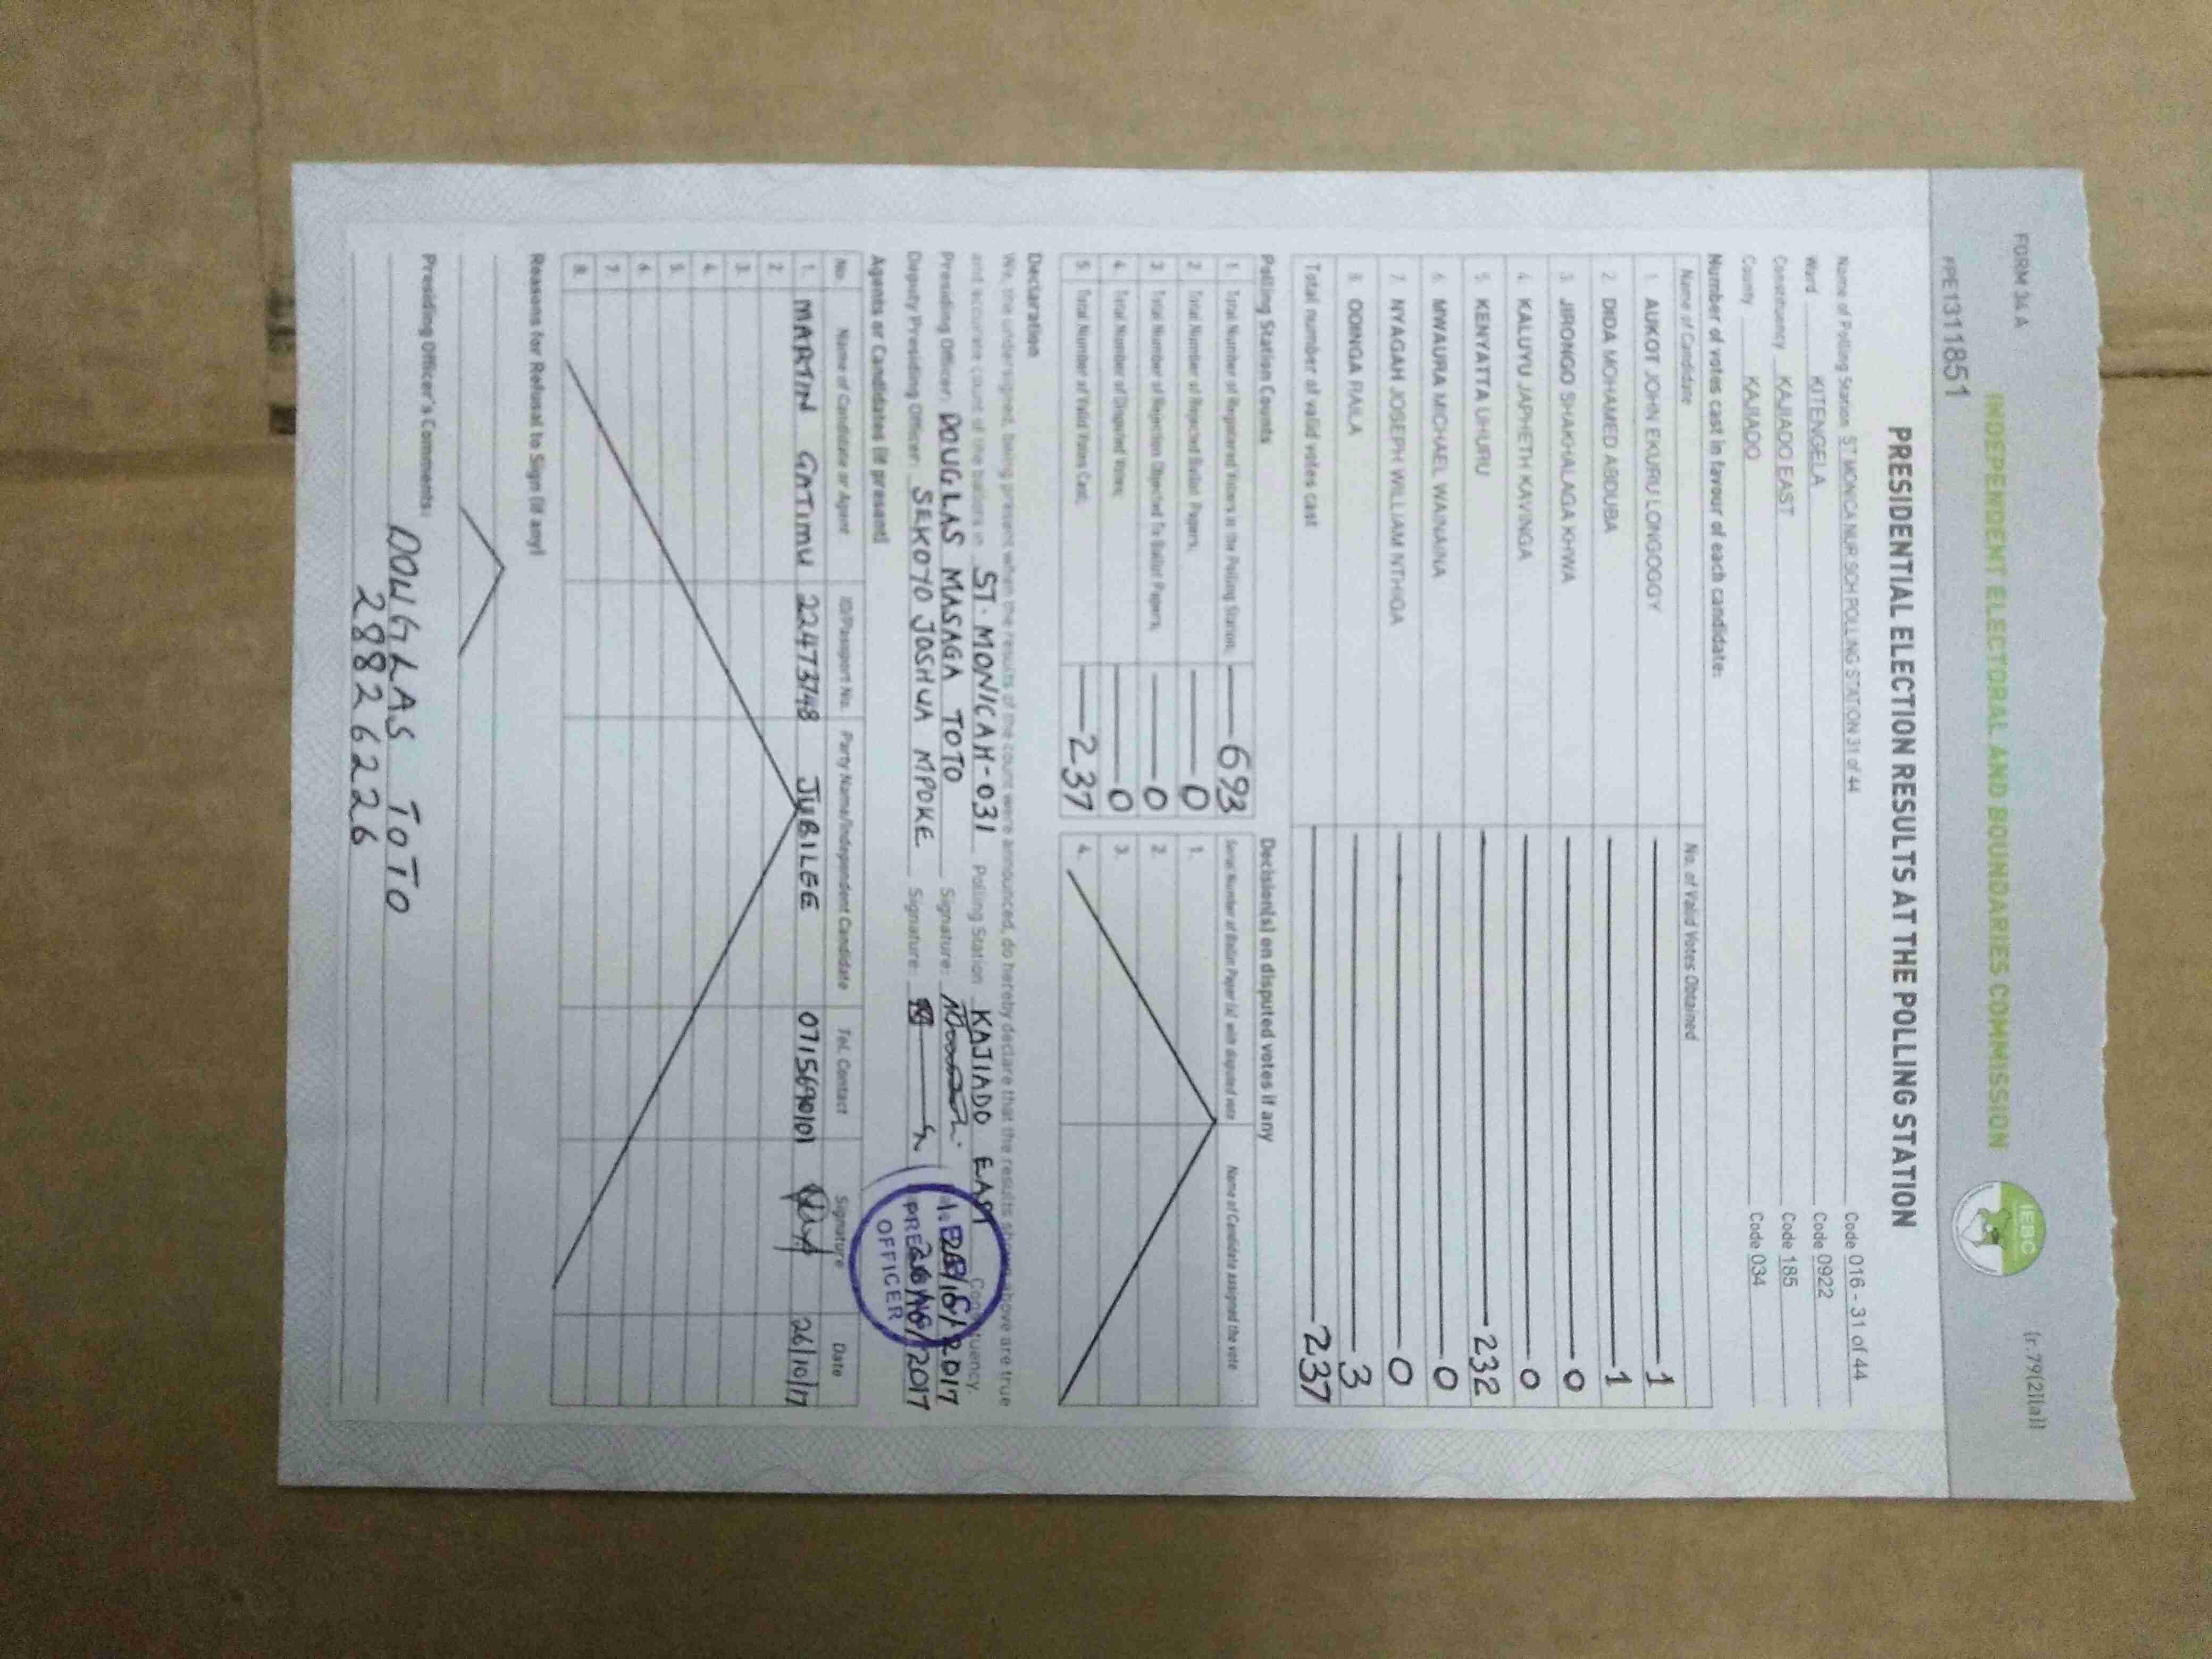 FORM 34 A
(r.79(2)(a))
INDEPENDENT ELECTORAL AND BOUNDARIES COMMISSION
IEBC
PPE1311851
PRESIDENTIAL ELECTION RESULTS AT THE POLLING STATION
Name of Polling Station ST MONICA NUR SCH POLLING STATION 31 of 44 Code 016 - 31 of 44
Ward KITENGELA Code 0922
Constituency KAJIADO EAST Code 185
County KAJIADO Code 034
Number of votes cast in favour of each candidate:
Name of Candidate No. of Valid Votes Obtained
1. AUKOT JOHN EKURU LONGOGGY 1
2. DIDA MOHAMED ABDUBA 1
3. JIRONGO SHAKHALAGA KHWA 0
4. KALUYU JAPHETH KAVINGA 0
5. KENYATTA UHURU 232
6. MWAURA MICHAEL WAINAINA 0
7. NYAGAH JOSEPH WILLIAM NTHIGA 0
8. ODINGA RAILA 3
Total number of valid votes cast 237
Polling Station Counts
1. Total Number of Registered Voters in the Polling Station 693
2. Total Number of Rejected Ballot Papers 0
3. Total Number of Rejection Objected To Ballot Papers 0
4. Total Number of Disputed Votes 0
5. Total Number of Valid Votes Cast 237
Decision(s) on disputed votes if any
Serial Number of Ballot Paper (s) with disputed vote Name of Candidate assigned the vote
1.
2.
3.
4.
Declaration
We, the undersigned, being present when the results of the count were announced, do hereby declare that the results shown above are true
and accurate count of the ballots in ST. MONICAH-031 Polling Station KAJIADO EAST Constituency.
Presiding Officer: DOUGLAS MASAGA TOTO Signature: 26/10/2017
Deputy Presiding Officer: SEKOTO JOSHUA MPOKE Signature: 26/10/2017
PRESIDING
OFFICER
Agents or Candidates (if present)
No. Name of Candidate or Agent ID/Passport No. Party Name/Independent Candidate Tel. Contact Signature Date
1. MARTIN GATIMU 22473748 JUBILEE 0715690101 26/10/17
2.
3.
4.
5.
6.
7.
8.
Reasons for Refusal to Sign (if any)
Presiding Officer's Comments:
DOUGLAS TOTO
28826226